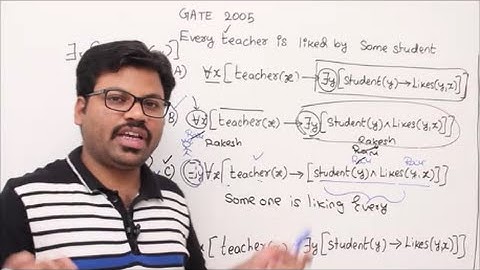 GATE 2005
Every teacher is liked by Some student
A) ∀x[teacher(x) → ∃y[Student(y)→Likes(y,x)]]
B) ∀x[teacher(x) → ∃y[Student(y)∧Likes(y,x)]]
Rakesh Rakesh
C) ∃y∀x[teacher(x)→[student(y)∧Likes(y,x)]]
Some one is liking Every
[teacher ∃y[Student(y)→Likes(y,x)]]